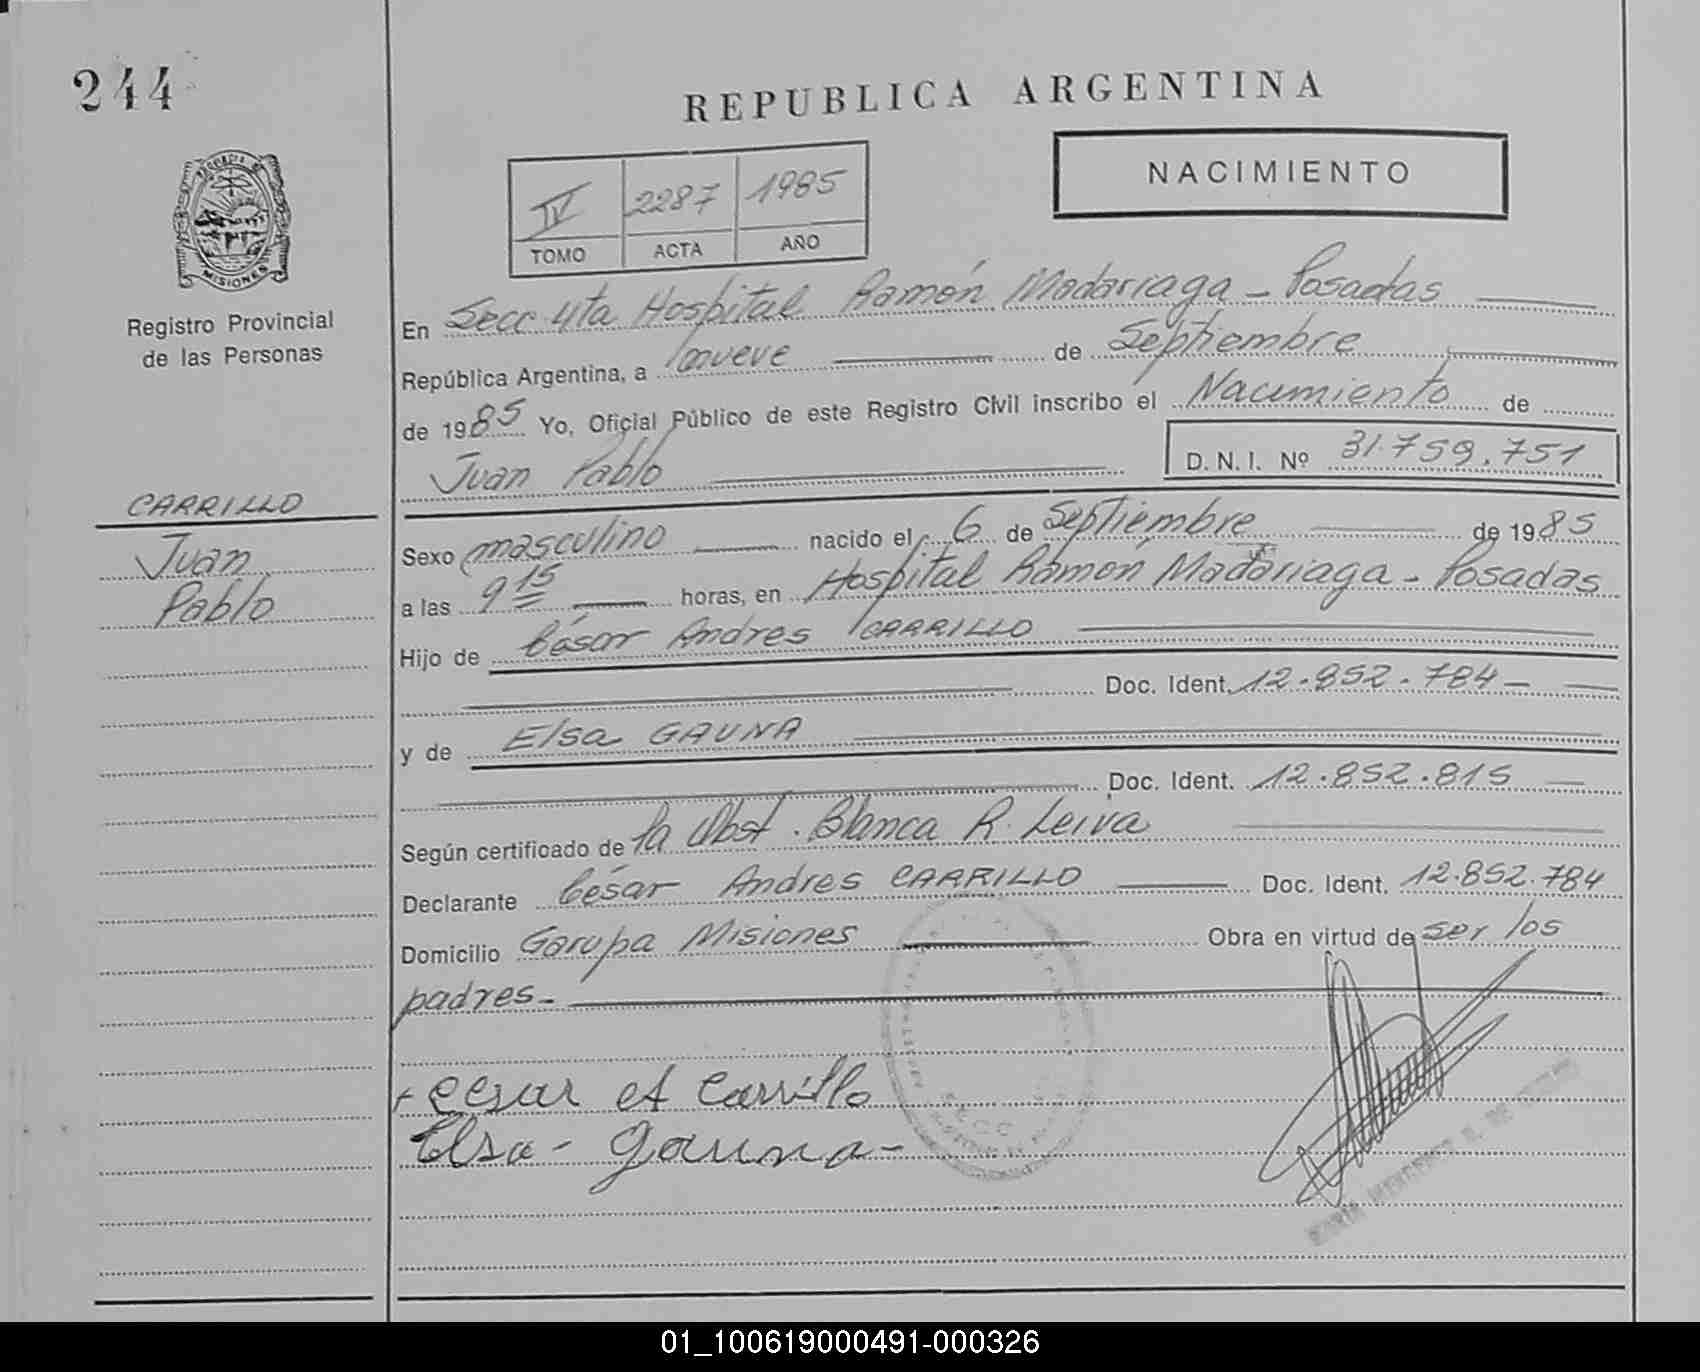 244
REPUBLICA ARGENTINA
NACIMIENTO
IV 2287 1985
TOMO ACTA AÑO
MISIONES
Registro Provincial
de las Personas
En Secc 4ta Hospital Ramón Madariaga - Posadas
República Argentina, a nueve de Septiembre
de 1985 Yo, Oficial Público de este Registro Civil inscribo el Nacimiento de
Juan Pablo D. N. I. Nº 31.759.751
CARRILLO
Juan
Pablo
Sexo masculino nacido el 6 de Septiembre de 1985
a las 9 15 horas, en Hospital Ramón Madariaga - Posadas
Hijo de César Andres CARRILLO
Doc. Ident. 12.852.784 -
y de Elsa GAUNA
Doc. Ident. 12.852.815
Según certificado de la Obst. Blanca R. Leiva
Declarante César Andres CARRILLO Doc. Ident. 12.852.784
Domicilio Garupa Misiones Obra en virtud de ser los
padres -
Cesar A Carrillo
Elsa - Gauna -
MARIA
01_100619000491-000326